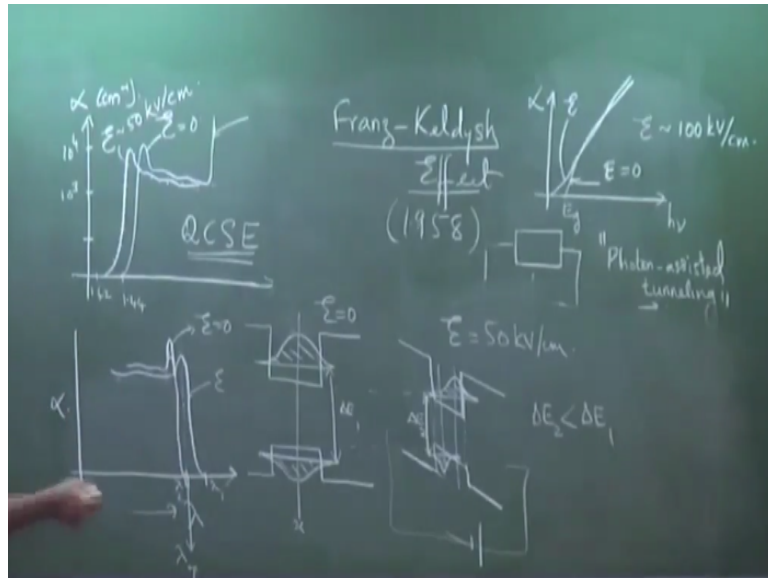 α (cm⁻¹)
ℰ ~50 kV/cm.
ℰ=0
10⁴
10³
QCSE
1.42 1.44
Franz-Keldysh
Effect
(1958)
α
ℰ
ℰ ~ 100 kV/cm.
ℰ=0
Eg
hν
"Photon-assisted
tunneling"
α
ℰ=0
ℰ
λ
ℰ=0
ΔE₁
x
ℰ = 50 kV/cm.
ΔE₂
ΔE₂ < ΔE₁